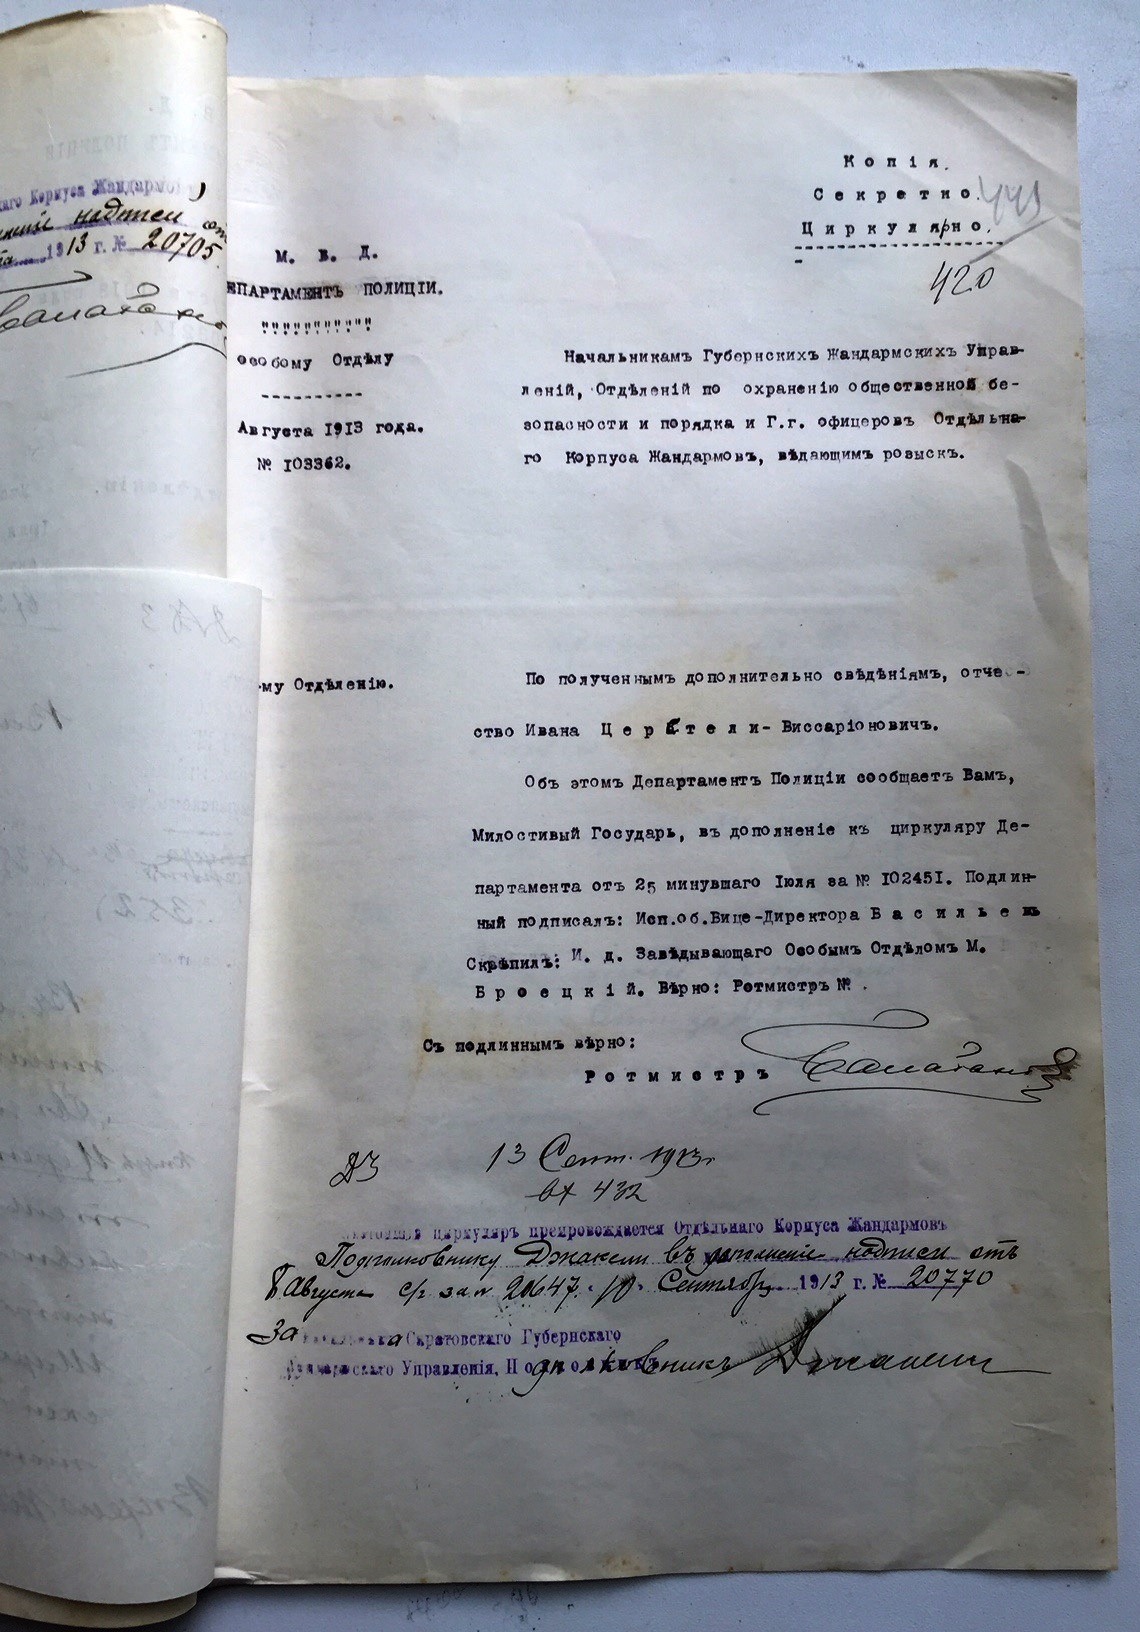 Копія.
Секретно.
Циркулярно.
449
420
М. В. Д.
ЕПАРТАМЕНТЪ ПОЛИЦІИ.
особому Отдѣлу
Августа 1913 года.
№ 103362.
Начальникамъ Губернскихъ Жандармскихъ Управ-
леній, Отдѣленій по охраненію общественной бе-
зопасности и порядка и Г.г. офицеровъ Отдѣльна-
го Корпуса Жандармовъ, вѣдающимъ розыскъ.
-му Отдѣленію.
По полученнымъ дополнительно свѣдѣніямъ, отче-
ство Ивана Церетели- Виссаріоновичъ.
Объ этомъ Департаментъ Полиціи сообщаетъ Вамъ,
Милостивый Государь, въ дополненіе къ циркуляру Де-
партамента отъ 25 минувшаго Іюля за № 102451. Подлин-
ный подписалъ: Исп.об.Вице-Директора Васильевъ
Скрѣпилъ: И. д. Завѣдывающаго Особымъ Отдѣломъ М.
Броецкій. Вѣрно: Ротмистръ №.
Съ подлиннымъ вѣрно:
Ротмистръ
13 Сент. 1913 г
вх 432
циркуляръ препровождается Отдѣльнаго Корпуса Жандармовъ
Подполковнику Джакели въ дополненіе надписи отъ
8 Августа с/г за № 20647. 10 Сентября 1913 г. № 20770
За Саратовскаго Губернскаго
Управленія, Подполковникъ Джакели
наго Корпуса Жандармов
надписи от
1913 г. № 20705